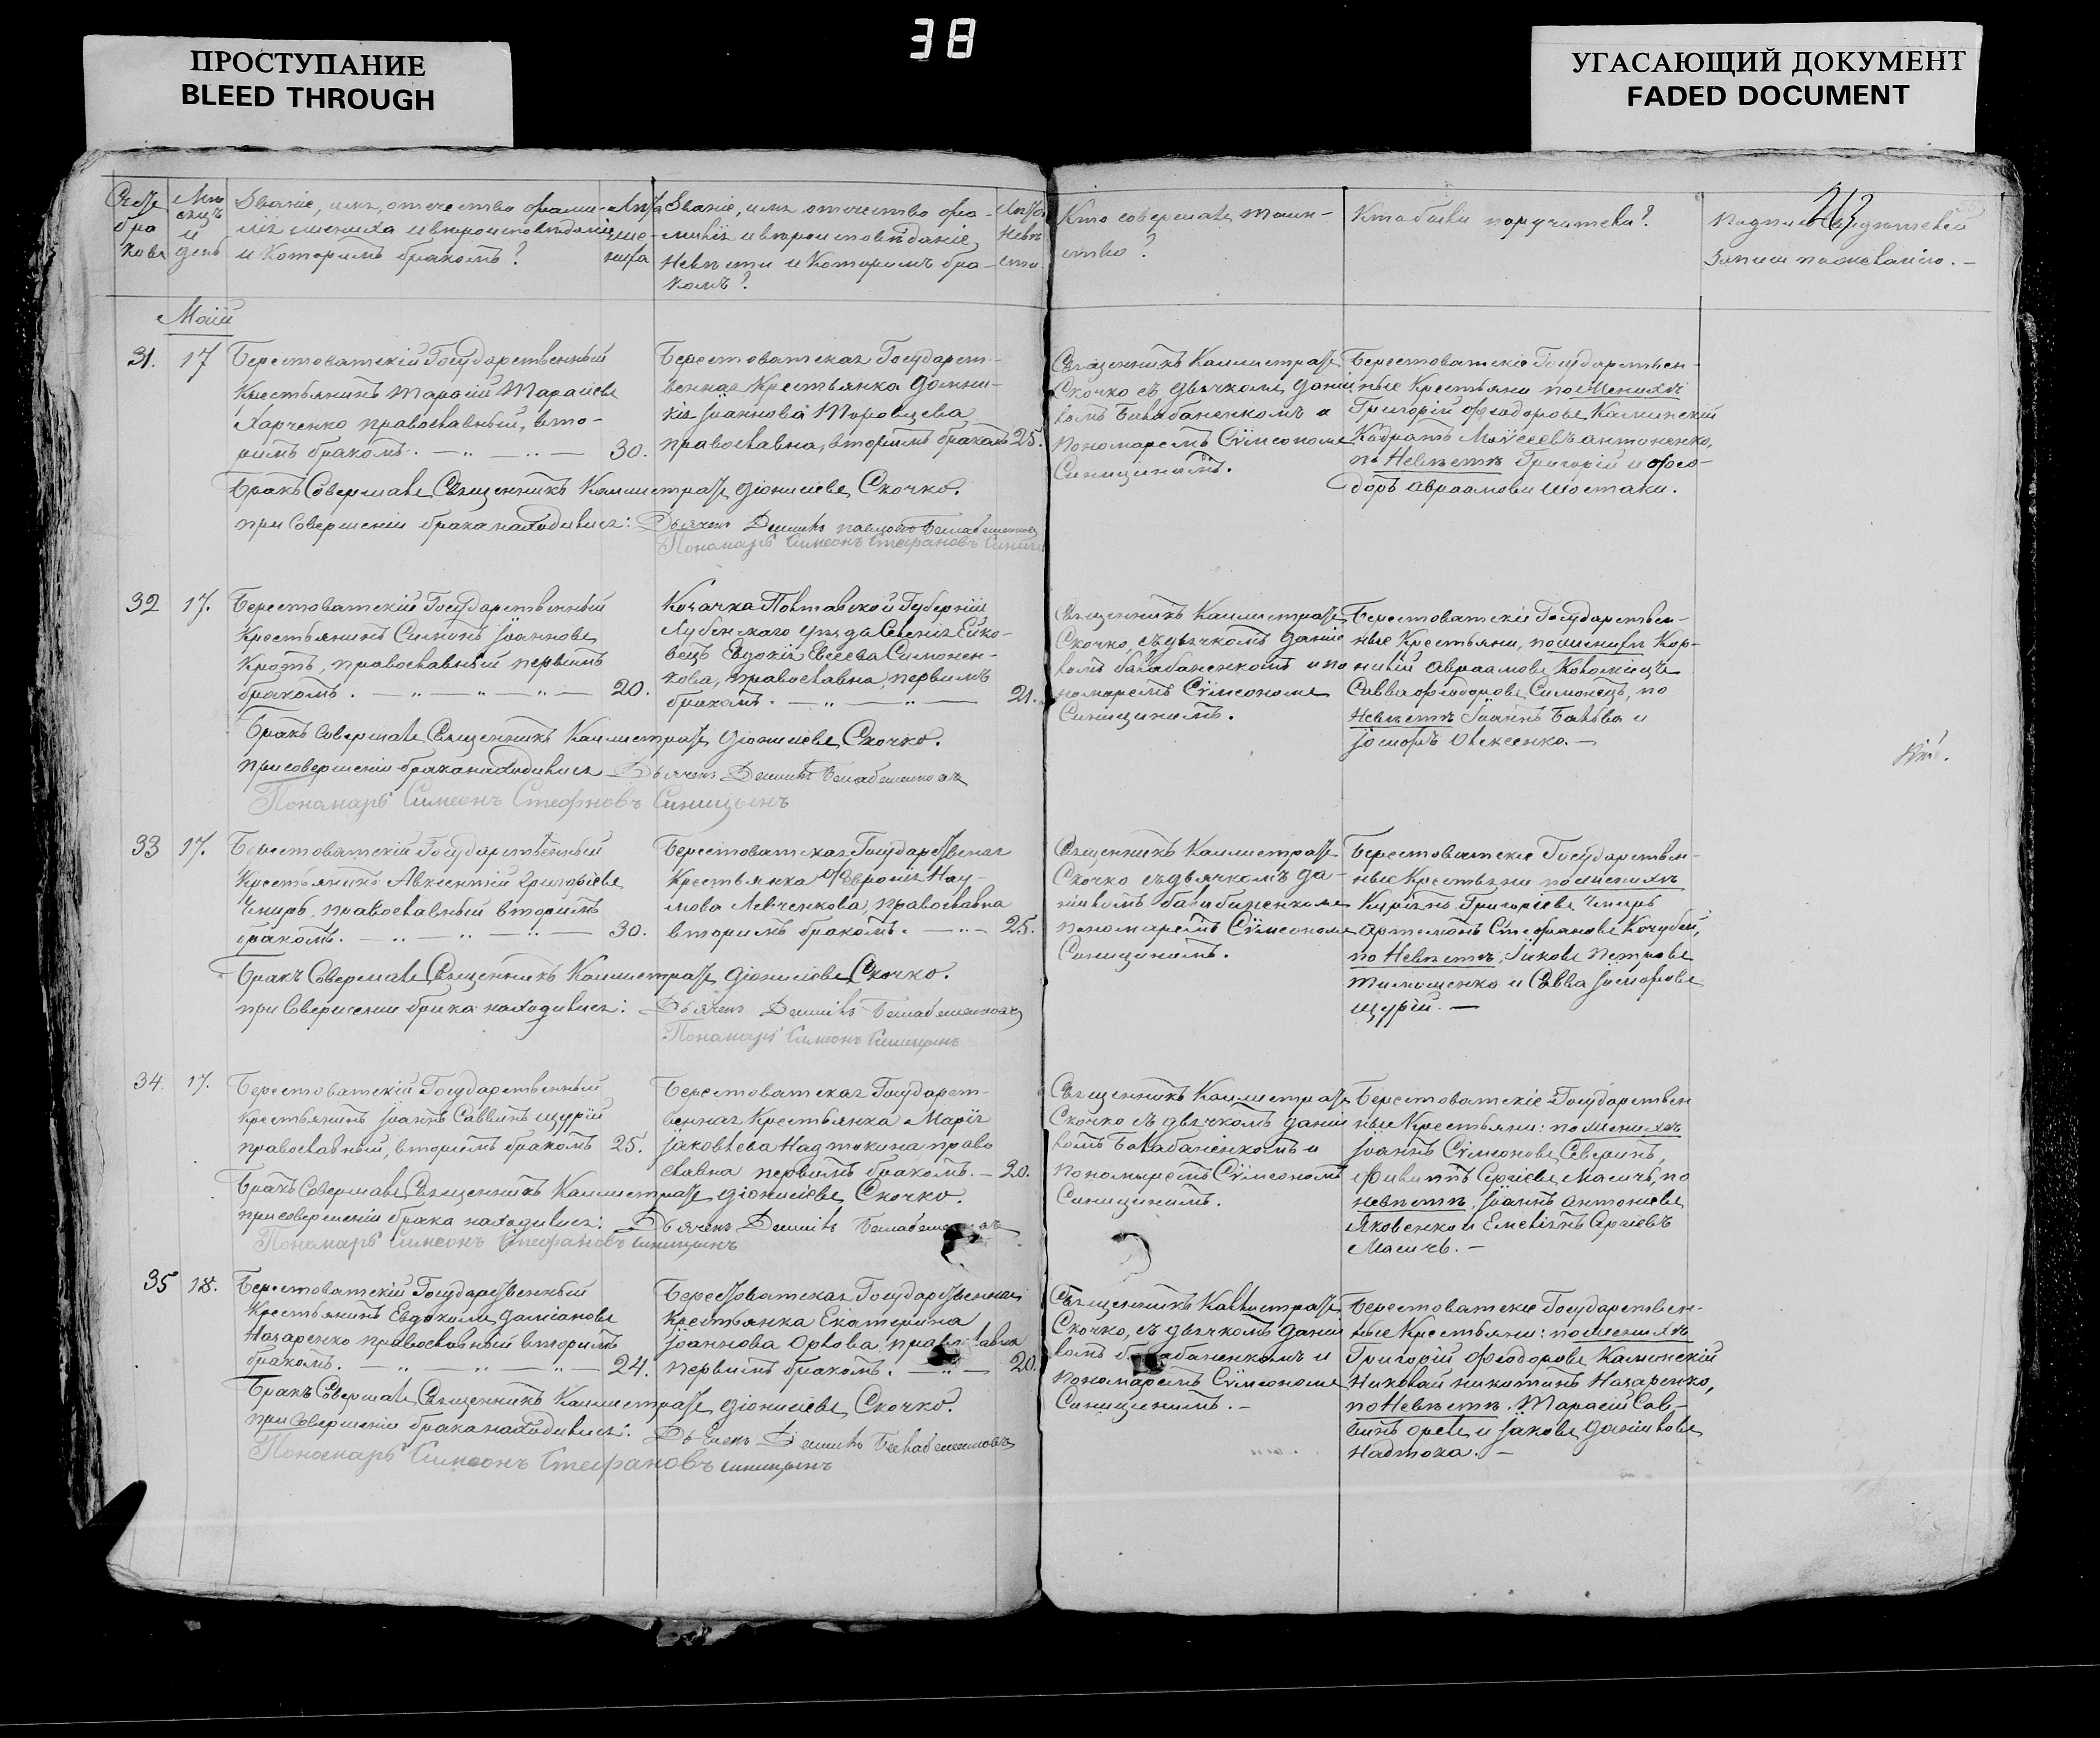 38
ПРОСТУПАНИЕ
BLEED THROUGH
УГАСАЮЩИЙ ДОКУМЕНТ
FADED DOCUMENT
Званіе, имя, отечество фами-
лія жениха и вѣроисповѣданіе
и которымъ бракомъ?
Званіе, имя отечество фа-
милія и вѣроисповѣданіе
Невѣсты и которымъ бра-
комъ?
Кто совершалъ таин-
ство?
Кто были поручители?
Записи по желанію. –
Маій
31. 17
Берестоватскій Государственный
Крестьянинъ Тарасій Тарасіевъ
Харченко православный, вто-
рымъ бракомъ. 30.
Берестоватская Государст-
венная Крестьянка Домни-
кія Іоаннова
православна, вторымъ бракомъ 25.
Священникъ Каллистратъ
Скочко съ дьячкомъ Данiи
ломъ Балабаненкомъ и
Пономаремъ Сѵмеономъ
Синицинымъ.
Берестоватскіе Государствен-
ные Крестьяни по Женихѣ
Григорій Феодоровъ Калинскій
Кодратъ Моѵсеевъ Антоненко,
по Невѣстѣ Григорій и Фео-
доръ Авраамовы Шостаки.
Бракъ Совершалъ Священникъ Каллистратъ Діонисіевъ Скочко.
при Совершеніи брака находились: Дьячекъ Даніилъ Павловъ Балабаненковъ
Пономарь Симеонъ Стефановъ
32 17.
Берестоватскій Государственный
Крестьянинъ Симонъ Іоанновъ
Кротъ, православный первымъ
бракомъ. 20.
Козачка Полтавской Губерніи
Лубенскаго уѣзда Селенія
Евдокія Евсеева Симонен-
кова, православна, первымъ
бракомъ. 21.
Священникъ Каллистратъ
Скочко, съ дьячкомъ Даніи
ломъ Балабаненкомъ и по
номаремъ Сѵмеономъ
Синицинымъ.
Берестоватскіе Государствен-
ные Крестьяни, по женихѣ Кор-
нилій Авраамовъ Коломіецъ
Савва Феодоровъ Симонецъ, по
Невѣстѣ Іоаннъ и
Іосифъ Олексенко. –
Бракъ Совершалъ Священникъ Каллистратъ Діонисіевъ Скочко.
при совершеніи брака находились Дьячекъ Даніилъ Балабаненковъ
Пономарь Симеонъ Стефновъ Синицынъ
33 17.
Берестоватскій Государственный
Крестьянинъ Авксентій Григоріевъ
православный вторымъ
бракомъ. 30.
Берестоватская Государственая
Крестьянка Феѵронія Нау-
мова Левченкова, православна
вторымъ бракомъ. 25.
Священникъ Каллистратъ
Скочко съ дьячкомъ Да-
ніиломъ Балабаненкомъ
пономаремъ Сѵмеономъ
Синицинымъ.
Берестоватскіе Государствен-
ные Крестьяни по женихѣ
Григоріевъ
Артемонъ Стефановъ Кочубей,
по Невѣстѣ, Іаковъ Петровъ
Тимошенко и Савва Іосифовъ
Щурій. –
Бракъ Совершалъ Священникъ Каллистратъ Діонисіевъ Скочко.
при Совершении брака находились: Дьячекъ Даніилъ Балабаненковъ
Пономарь Симеонъ Синицынъ
34. 17.
Берестоватскій Государственный
Крестьянинъ Іоаннъ Саввинъ Щурій
православный, вторымъ бракомъ 25.
Берестоватская Государст-
венная Крестьянка Марія
Іаковлева Надтокина право
славна первымъ бракомъ. – 20.
Священникъ Каллистратъ
Скочко съ дьячкомъ Даніи
ломъ Балабаненкомъ и
Пономаремъ Сѵмеономъ
Синицинымъ.
Берестоватскіе Государствен
ные Крестьяни: по женихѣ
Іоаннъ Сѵмеоновъ Северинъ,
Филиппъ Сергіевъ Масичъ, по
невѣстѣ, Іоаннъ Антоніевъ
Яковенко и Емеліянъ
Масичъ. –
Бракъ Совершалъ Священникъ Каллистратъ Діонисіевъ Скочко.
при совершеніи брака находились: Дьячекъ Даніилъ
Пономарь Симеонъ Стефановъ Синицынъ
35 18.
Берестоватскій Государственный
Крестьянинъ Евдокимъ Даміановъ
Назаренко православный вторымъ
бракомъ. 24.
Берестоватская Государственная
Крестьянка Екатерина
Іоаннова Орлова, православна
первымъ бракомъ. 20.
Священникъ Каллистратъ
Скочко, съ дьячкомъ Даніи
ломъ Балабаненкомъ и
Пономаремъ Сѵмеономъ
Синицинымъ. –
Берестоватскіе Государствен-
ные Крестьяни: по женихѣ
Григорій Феодоровъ Калинскій
Николай Никитинъ Назаренко,
по Невѣстѣ. Тарасій Сав-
винъ Орелъ и Іаковъ Даніиловъ
Надтока. –
Бракъ Совершалъ Священникъ Каллистратъ Діонисіевъ Скочко.
при Совершеніи брака находились: Дьячекъ Даніилъ Балабаненковъ
Пономарь Симеонъ Стефановъ Синицынъ